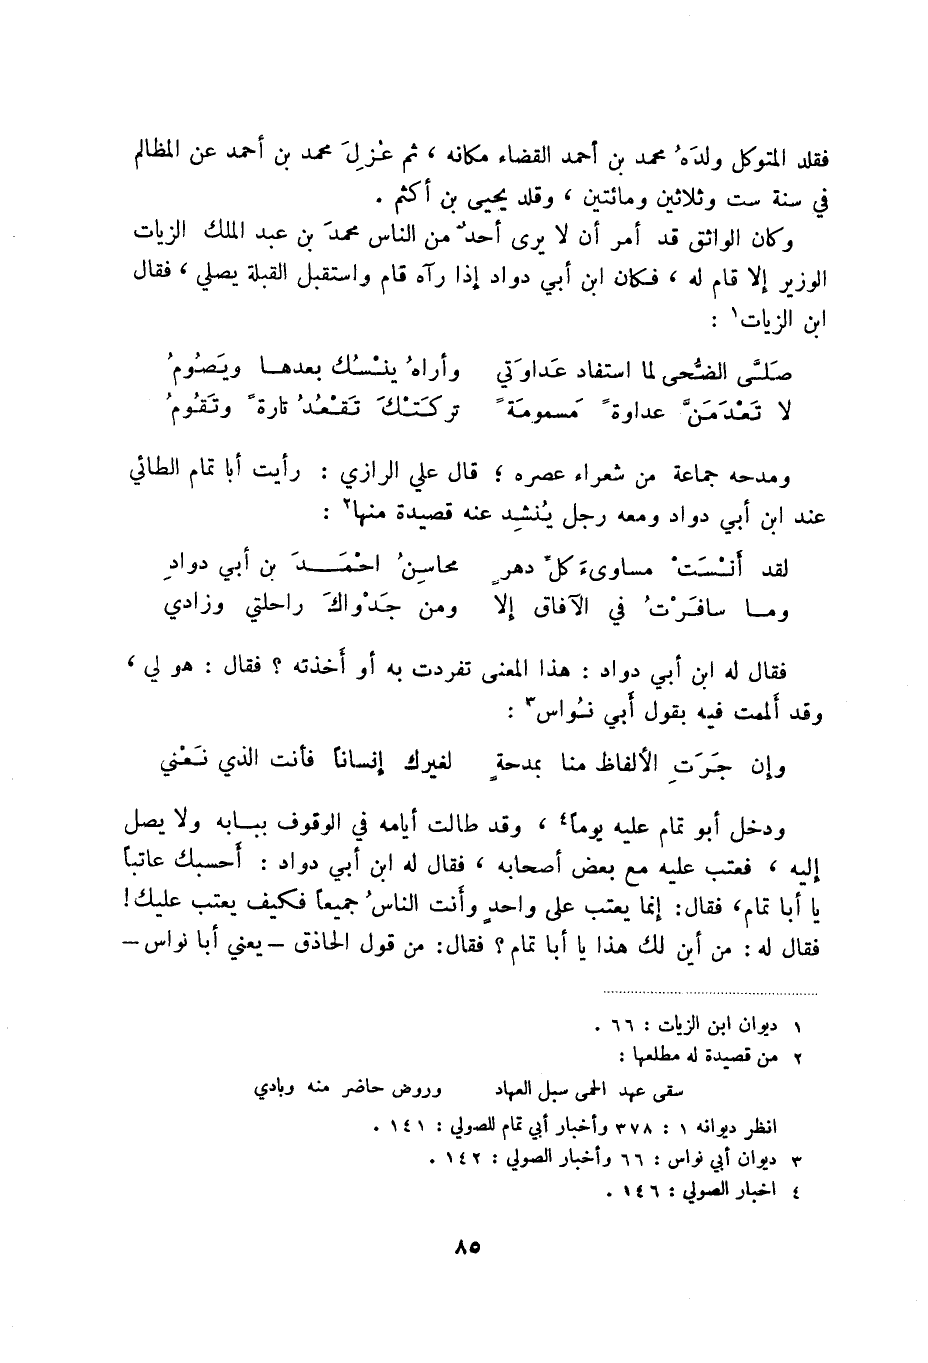 فقلد المتوكل ولدَهُ محمد بن أحمد القضاء مكانه ، ثم عُزِلَ محمد بن أحمد عن المظالم
في سنة ست وثلاثين ومائتين ، وقلد يحيى بن أكثم .
وكان الواثق قد أمر أن لا يرى أحدٌ من الناس محمدَ بن عبد الملك الزيات
الوزير إلا قام له ، فكان ابن أبي دواد إذا رآه قام واستقبل القبلة يصلي ، فقال
ابن الزيات١ :
صَلَّى الضُّحى لما استفاد عَداوَتي وأراهُ ينْسُك بعدها ويَصُومُ
لا تَعْدَمَنَّ عداوةً مَسمومَةً تركَتْكَ تَقْعُدُ تارةً وتَقُومُ
ومدحه جماعة من شعراء عصره ؛ قال علي الرازي : رأيت أبا تمام الطائي
عند ابن أبي دواد ومعه رجل يُنْشِد عنه قصيدة منها٢ :
لقد أَنْسَتْ مساوىءَ كلِّ دهرٍ محاسنُ احْمَدَ بن أبي دوادِ
وما سافَرْتُ في الآفاق إلا ومن جَدْواكَ راحلتي وزادي
فقال له ابن أبي دواد : هذا المعنى تفردت به أو أَخذته ؟ فقال : هو لي ،
وقد أَلممت فيه بقول أَبي نُواس٣ :
وإن جَرَتِ الألفاظ منا بمدحةٍ لغيرك إنساناً فأنت الذي نَعْني
ودخل أبو تمام عليه يوماً٤ ، وقد طالت أيامه في الوقوف ببابه ولا يصل
إليه ، فعتب عليه مع بعض أصحابه ، فقال له ابن أبي دواد : أَحسبك عاتباً
يا أبا تمام، فقال: إنما يعتب على واحدٍ وأَنت الناسُ جميعاً فكيف يعتب عليك!
فقال له: من أين لك هذا يا أبا تمام؟ فقال: من قول الحاذق – يعني أبا نواس –
١ ديوان ابن الزيات : ٦٦ .
٢ من قصيدة له مطلعها :
سقى عهد الحمى سبل العهاد وروض حاضر منه وبادي
انظر ديوانه ١ : ٣٧٨ وأخبار أبي تمام للصولي : ١٤١ .
٣ ديوان أبي نواس : ٦٦ وأخبار الصولي : ١٤٢ .
٤ اخبار الصولي : ١٤٦ .
٨٥